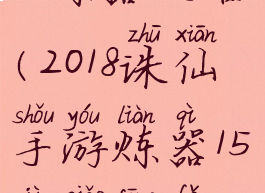 zhū xiān
(2018诛仙
shǒu yóu liàn qì
手游炼器15